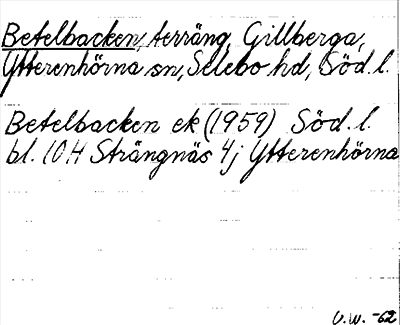 Betelbacken, terräng, Gillberga,
Ytterenhörna sn, Selebo hd, Söd. l.
Betelbacken ek (1959) Söd. l.
bl. 10H Strängnäs 4j Ytterenhörna
U.W. -62